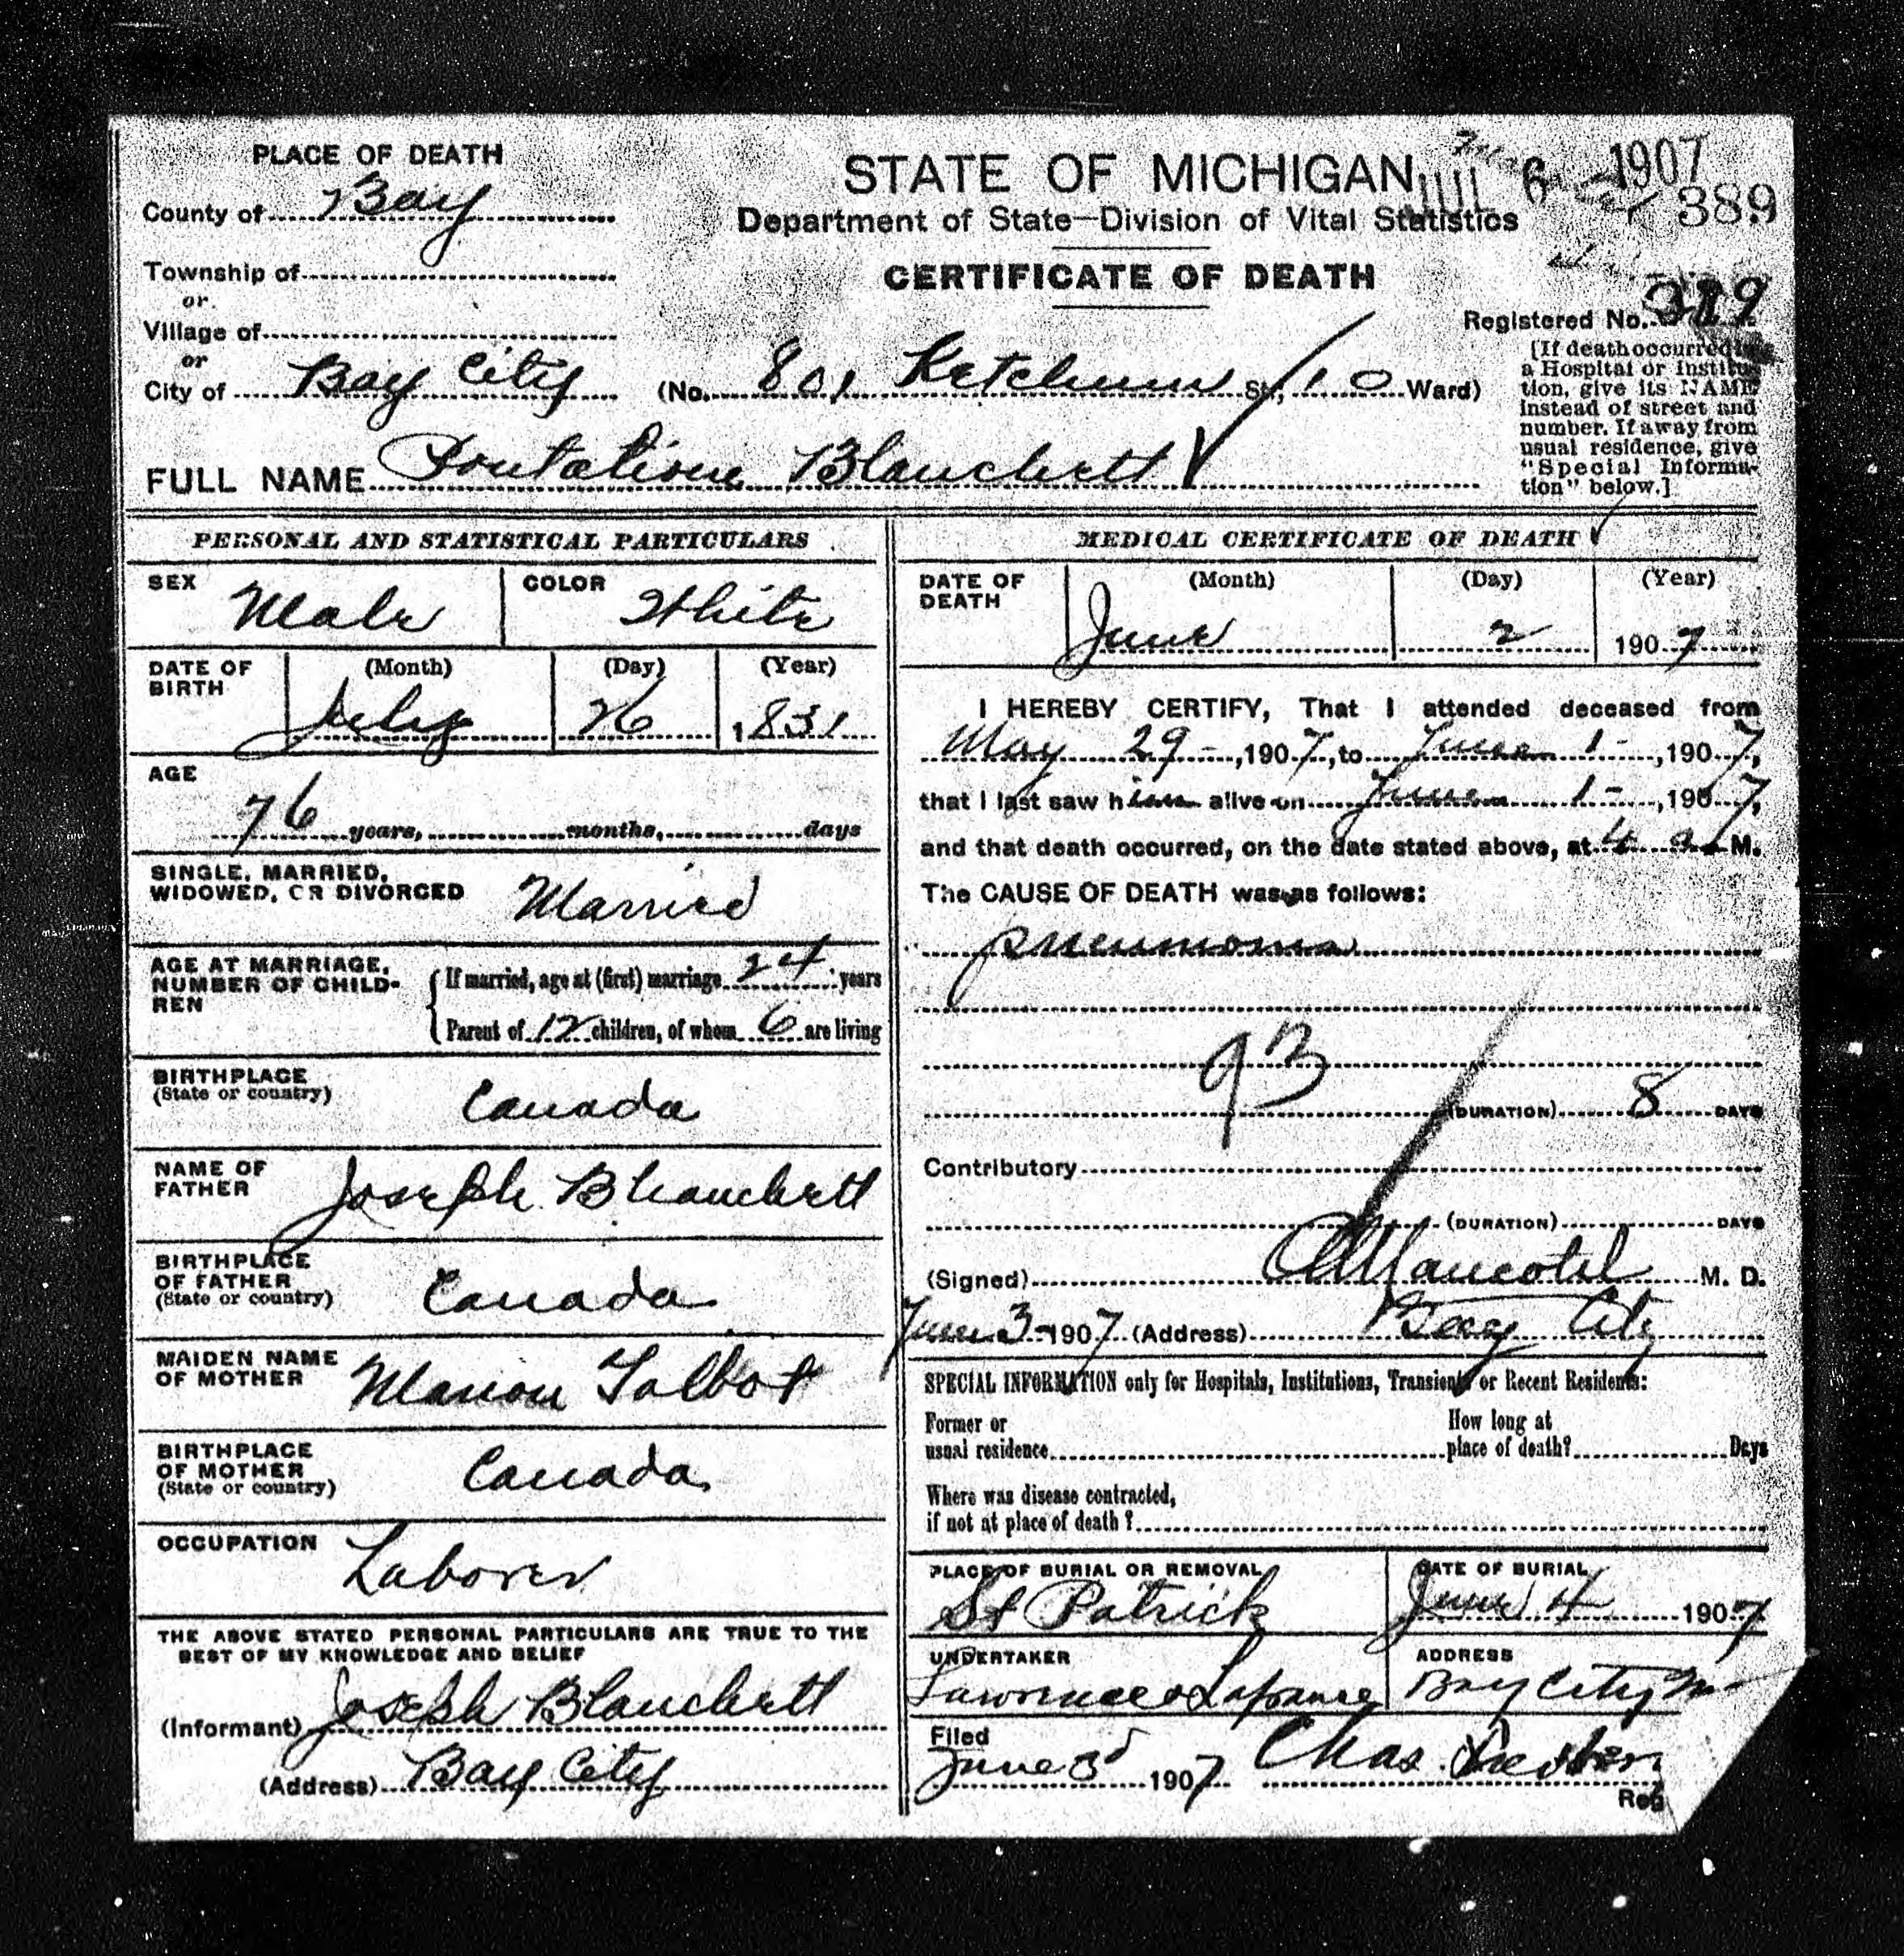 PLACE OF DEATH
County of Bay
Township of
or
Village of
or
City of Bay City
STATE OF MICHIGAN
Department of State—Division of Vital Statistics
CERTIFICATE OF DEATH
6 1907
389
Registered No. 389
(No. 801 Ketchum St., 10 Ward)
[If death occurred in
a Hospital or Institu-
tion, give its NAME
instead of street and
number. If away from
usual residence, give
"Special Informa-
tion" below.]
FULL NAME Blanchett
PERSONAL AND STATISTICAL PARTICULARS
SEX Male
COLOR White
DATE OF BIRTH
(Month) (Day) (Year)
July 26 1831
AGE
76 years, months, days
SINGLE, MARRIED,
WIDOWED, OR DIVORCED Married
AGE AT MARRIAGE,
NUMBER OF CHILD-
REN
If married, age at (first) marriage 24 years
Parent of 12 children, of whom 6 are living
BIRTHPLACE
(State or country) Canada
NAME OF
FATHER Joseph Blanchett
BIRTHPLACE
OF FATHER
(State or country) Canada
MAIDEN NAME
OF MOTHER Marion Talbot
BIRTHPLACE
OF MOTHER
(State or country) Canada
OCCUPATION
Laborer
THE ABOVE STATED PERSONAL PARTICULARS ARE TRUE TO THE
BEST OF MY KNOWLEDGE AND BELIEF
(Informant) Joseph Blanchett
(Address) Bay City
MEDICAL CERTIFICATE OF DEATH
DATE OF DEATH
(Month) (Day) (Year)
June 2 1907
I HEREBY CERTIFY, That I attended deceased from
May 29 -, 1907, to June 1 -, 1907,
that I last saw him alive on June 1 -, 1907,
and that death occurred, on the date stated above, at 4 a M.
The CAUSE OF DEATH was as follows:
pneumonia
93
(DURATION) 8 DAYS
Contributory
(DURATION) DAYS
(Signed) M. D.
June 3 - 1907 (Address) Bay City
SPECIAL INFORMATION only for Hospitals, Institutions, Transients or Recent Residents:
Former or
usual residence
How long at
place of death? Days
Where was disease contracted,
if not at place of death?
PLACE OF BURIAL OR REMOVAL
St Patrick
DATE OF BURIAL
June 4 1907
UNDERTAKER
Lawrence
ADDRESS
Bay City M
Filed
June 3d 1907 Chas
Reg